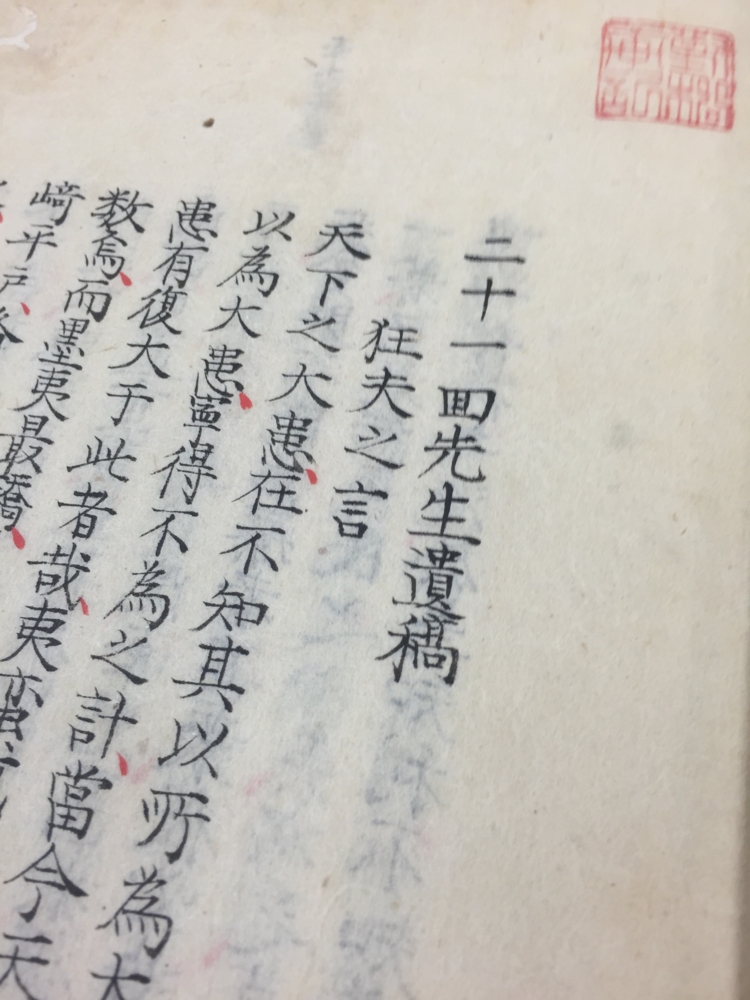 二十一囬先生遺稿
狂夫之言
天下之大患在不知其以所為大
以為大患寧得不為之計當今天
患有復大于此者哉夷蛮
数焉而墨夷最驕
﨑平戸